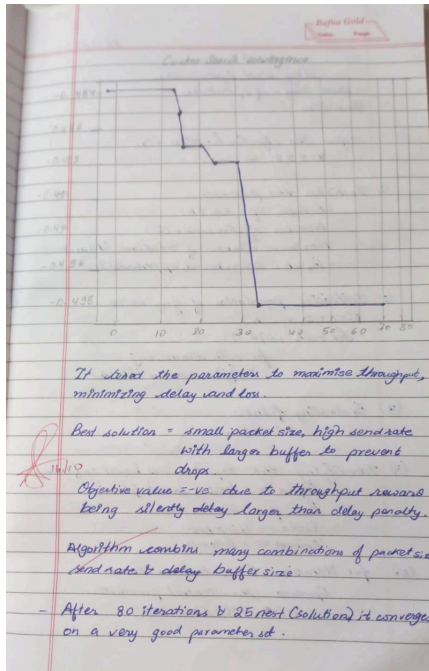 Bafna Gold
Date: Page:
Cuckoo Search convergence
-0.484
-0.49
-0.496
-0.498
0 10 20 30 40 50 60 70 80
It tuned the parameters to maximise throughput,
minimizing delay and loss.
Best solution = small packet size, high send rate
with larger buffer to prevent
drops.
Objective value = -ve due to throughput reward
being silently delay larger than delay penalty.
Algorithm combins many combinations of packet size
send rate & delay buffer size
- After 80 iterations & 25 nest (solution) it converges
on a very good parameter set.